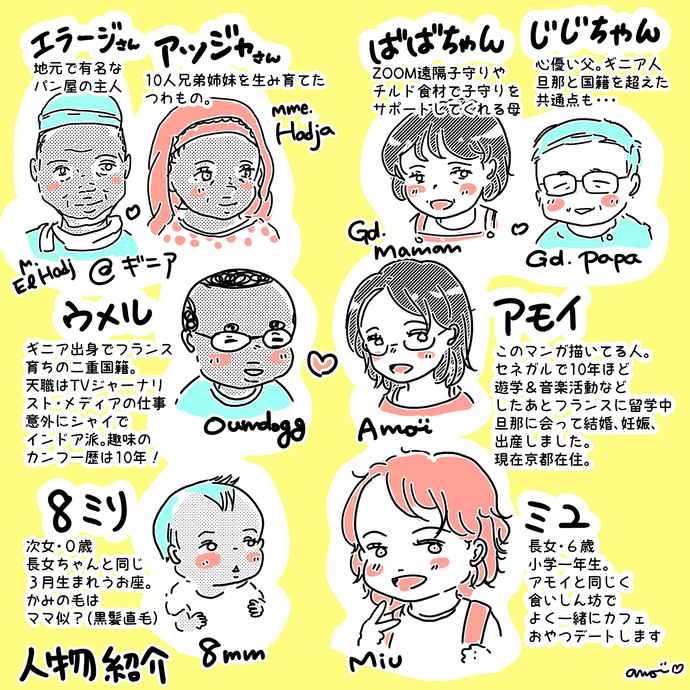 エラージさん
地元で有名な
パン屋の主人
M.
El Hadj
アッジャさん
10人兄弟姉妹を生み育てた
つわもの。
mme.
Hadja
@ギニア
ばばちゃん
ZOOM遠隔子守りや
チルド食材で子守りを
サポートしてくれる母
Gd.
maman
じじちゃん
心優しい父。ギニア人
旦那と国籍を超えた
共通点も・・・
Gd. papa
ウメル
ギニア出身でフランス
育ちの二重国籍。
天職はTVジャーナリ
スト・メディアの仕事
意外にシャイで
インドア派。趣味の
カンフー歴は10年!
Oumdogg
アモイ
このマンガ描いてる人。
セネガルで10年ほど
遊学&音楽活動など
したあとフランスに留学中
旦那に会って結婚、妊娠、
出産しました。
現在京都在住。
Amoï
8ミリ
次女・0歳
長女ちゃんと同じ
3月生まれうお座。
かみの毛は
ママ似?(黒髪直毛)
8mm
ミユ
長女・6歳
小学一年生。
アモイと同じく
食いしん坊で
よく一緒にカフェ
おやつデートします
Miu
人物紹介
amoï